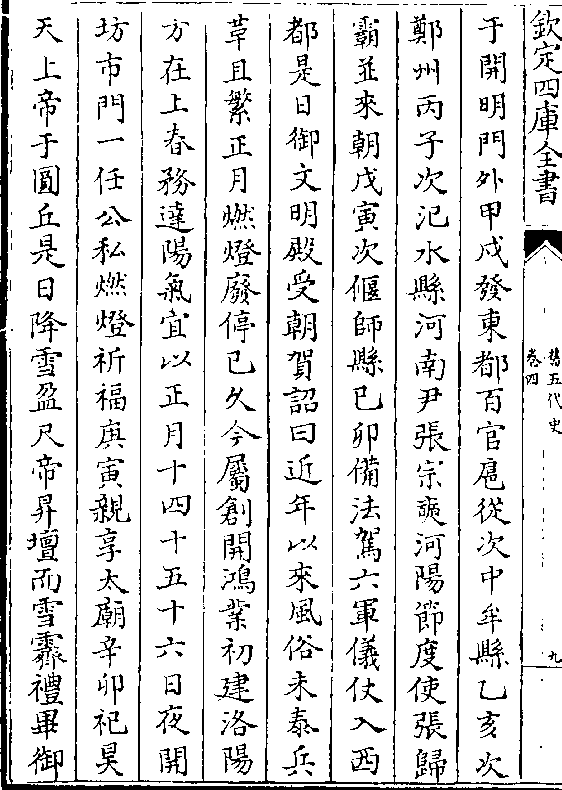 欽定四庫全書
舊五代史
卷四
九
于開明門外甲戌發東都百官扈從次中牟縣乙亥次
鄭州丙子次汜水縣河南尹張宗奭河陽節度使張歸
霸並來朝戊寅次偃師縣己卯備法駕六軍儀仗入西
都是日御文明殿受朝賀詔曰近年以來風俗未泰兵
革且繁正月燃燈廢停已久今屬創開鴻業初建洛陽
方在上春務達陽氣宜以正月十四十五十六日夜開
坊市門一任公私燃燈祈福庚寅親享太廟辛卯祀昊
天上帝于圜丘是日降雪盈尺帝昇壇而雪霽禮畢御